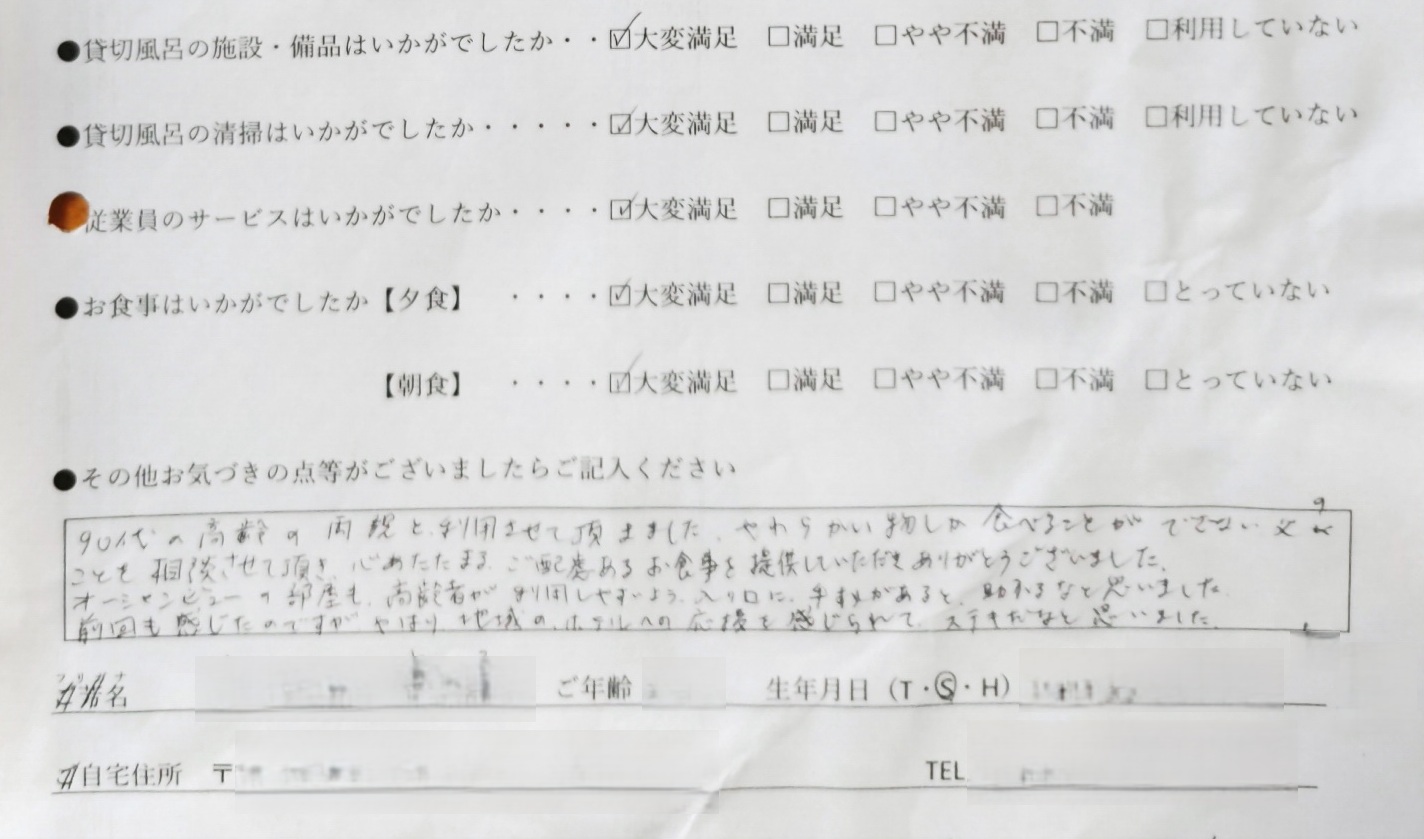 ●貸切風呂の施設・備品はいかがでしたか・・☑大変満足 □満足 □やや不満 □不満 □利用していない
●貸切風呂の清掃はいかがでしたか・・・・・☑大変満足 □満足 □やや不満 □不満 □利用していない
従業員のサービスはいかがでしたか・・・・☑大変満足 □満足 □やや不満 □不満
●お食事はいかがでしたか【夕食】 ・・・・☑大変満足 □満足 □やや不満 □不満 □とっていない
【朝食】 ・・・・☑大変満足 □満足 □やや不満 □不満 □とっていない
●その他お気づきの点等がございましたらご記入ください
90代の高齢の両親と利用させて頂きました。やわらかい物しか食べることができない父の
ことを相談させて頂き、心あたたまるご配慮あるお食事を提供していただきありがとうございました。
オーシャンビューの部屋も、高齢者が利用しやすいよう、入り口に、手すりがあると、助かるなと思いました。
前回も感じたのですがやはり地域の、ホテルへの応援を感じられて、ステキだなと思いました。
名 ご年齢 生年月日（T・Ⓢ・H）
自宅住所 〒 TEL